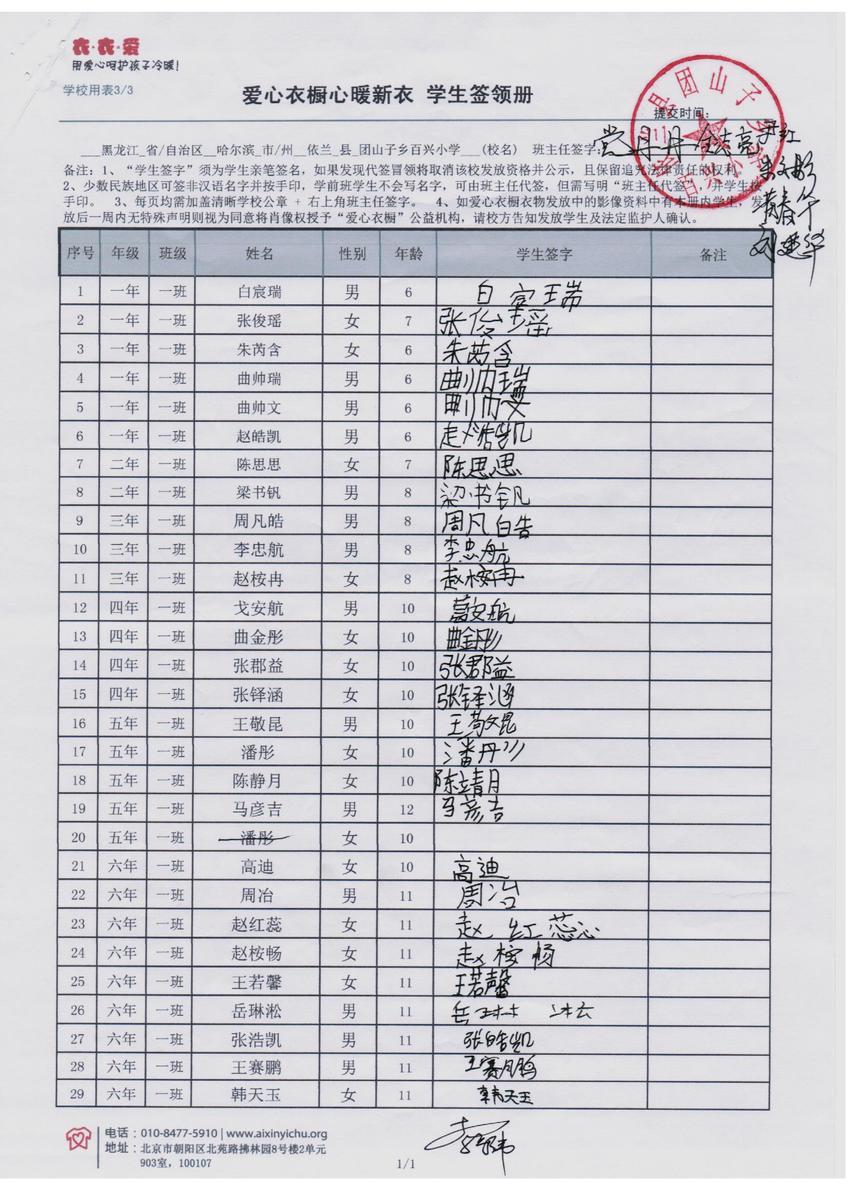 衣·衣·爱
用爱心呵护孩子冷暖!
学校用表3/3
爱心衣橱心暖新衣 学生签领册
提交时间:
___黑龙江_省/自治区__哈尔滨_市/州__依兰_县_团山子乡百兴小学___(校名) 班主任签字:
备注:1、“学生签字”须为学生亲笔签名,如果发现代签冒领将取消该校发放资格并公示,且保留追究法律责任的权利。
2、少数民族地区可签非汉语名字并按手印,学前班学生不会写名字,可由班主任代签,但需写明“班主任代签”,并学生按
手印。 3、每页均需加盖清晰学校公章 + 右上角班主任签字。 4、如爱心衣橱衣物发放中的影像资料中有本册内学生,发
放后一周内无特殊声明则视为同意将肖像权授予“爱心衣橱”公益机构,请校方告知发放学生及法定监护人确认。
序号 年级 班级 姓名 性别 年龄 学生签字 备注
1 一年 一班 白宸瑞 男 6 白宸瑞
2 一年 一班 张俊瑶 女 7 张俊瑶
3 一年 一班 朱芮含 女 6 朱芮含
4 一年 一班 曲帅瑞 男 6 曲帅瑞
5 一年 一班 曲帅文 男 6 曲帅文
6 一年 一班 赵皓凯 男 6 赵皓凯
7 二年 一班 陈思思 女 7 陈思思
8 二年 一班 梁书钒 男 8 梁书钒
9 三年 一班 周凡皓 男 8 周凡皓
10 三年 一班 李忠航 男 8 李忠航
11 三年 一班 赵桉冉 女 8 赵桉冉
12 四年 一班 戈安航 男 10 葛安航
13 四年 一班 曲金彤 女 10 曲金彤
14 四年 一班 张郡益 女 10 张郡益
15 四年 一班 张铎涵 女 10 张铎涵
16 五年 一班 王敬昆 男 10 王敬昆
17 五年 一班 潘彤 女 10 潘彤
18 五年 一班 陈静月 女 10 陈靖月
19 五年 一班 马彦吉 男 12 马彦吉
20 五年 一班 潘彤 女 10
21 六年 一班 高迪 女 10 高迪
22 六年 一班 周冶 男 11 周冶
23 六年 一班 赵红蕊 女 11 赵红蕊
24 六年 一班 赵桉畅 女 11 赵桉畅
25 六年 一班 王若馨 女 11 王若馨
26 六年 一班 岳琳淞 男 11 岳琳
27 六年 一班 张浩凯 男 11 张皓凯
28 六年 一班 王赛鹏 男 11 王赛鹏
29 六年 一班 韩天玉 女 11 韩天玉
电话:010-8477-5910 | www.aixinyichu.org
地址:北京市朝阳区北苑路拂林园8号楼2单元
903室,100107
1/1